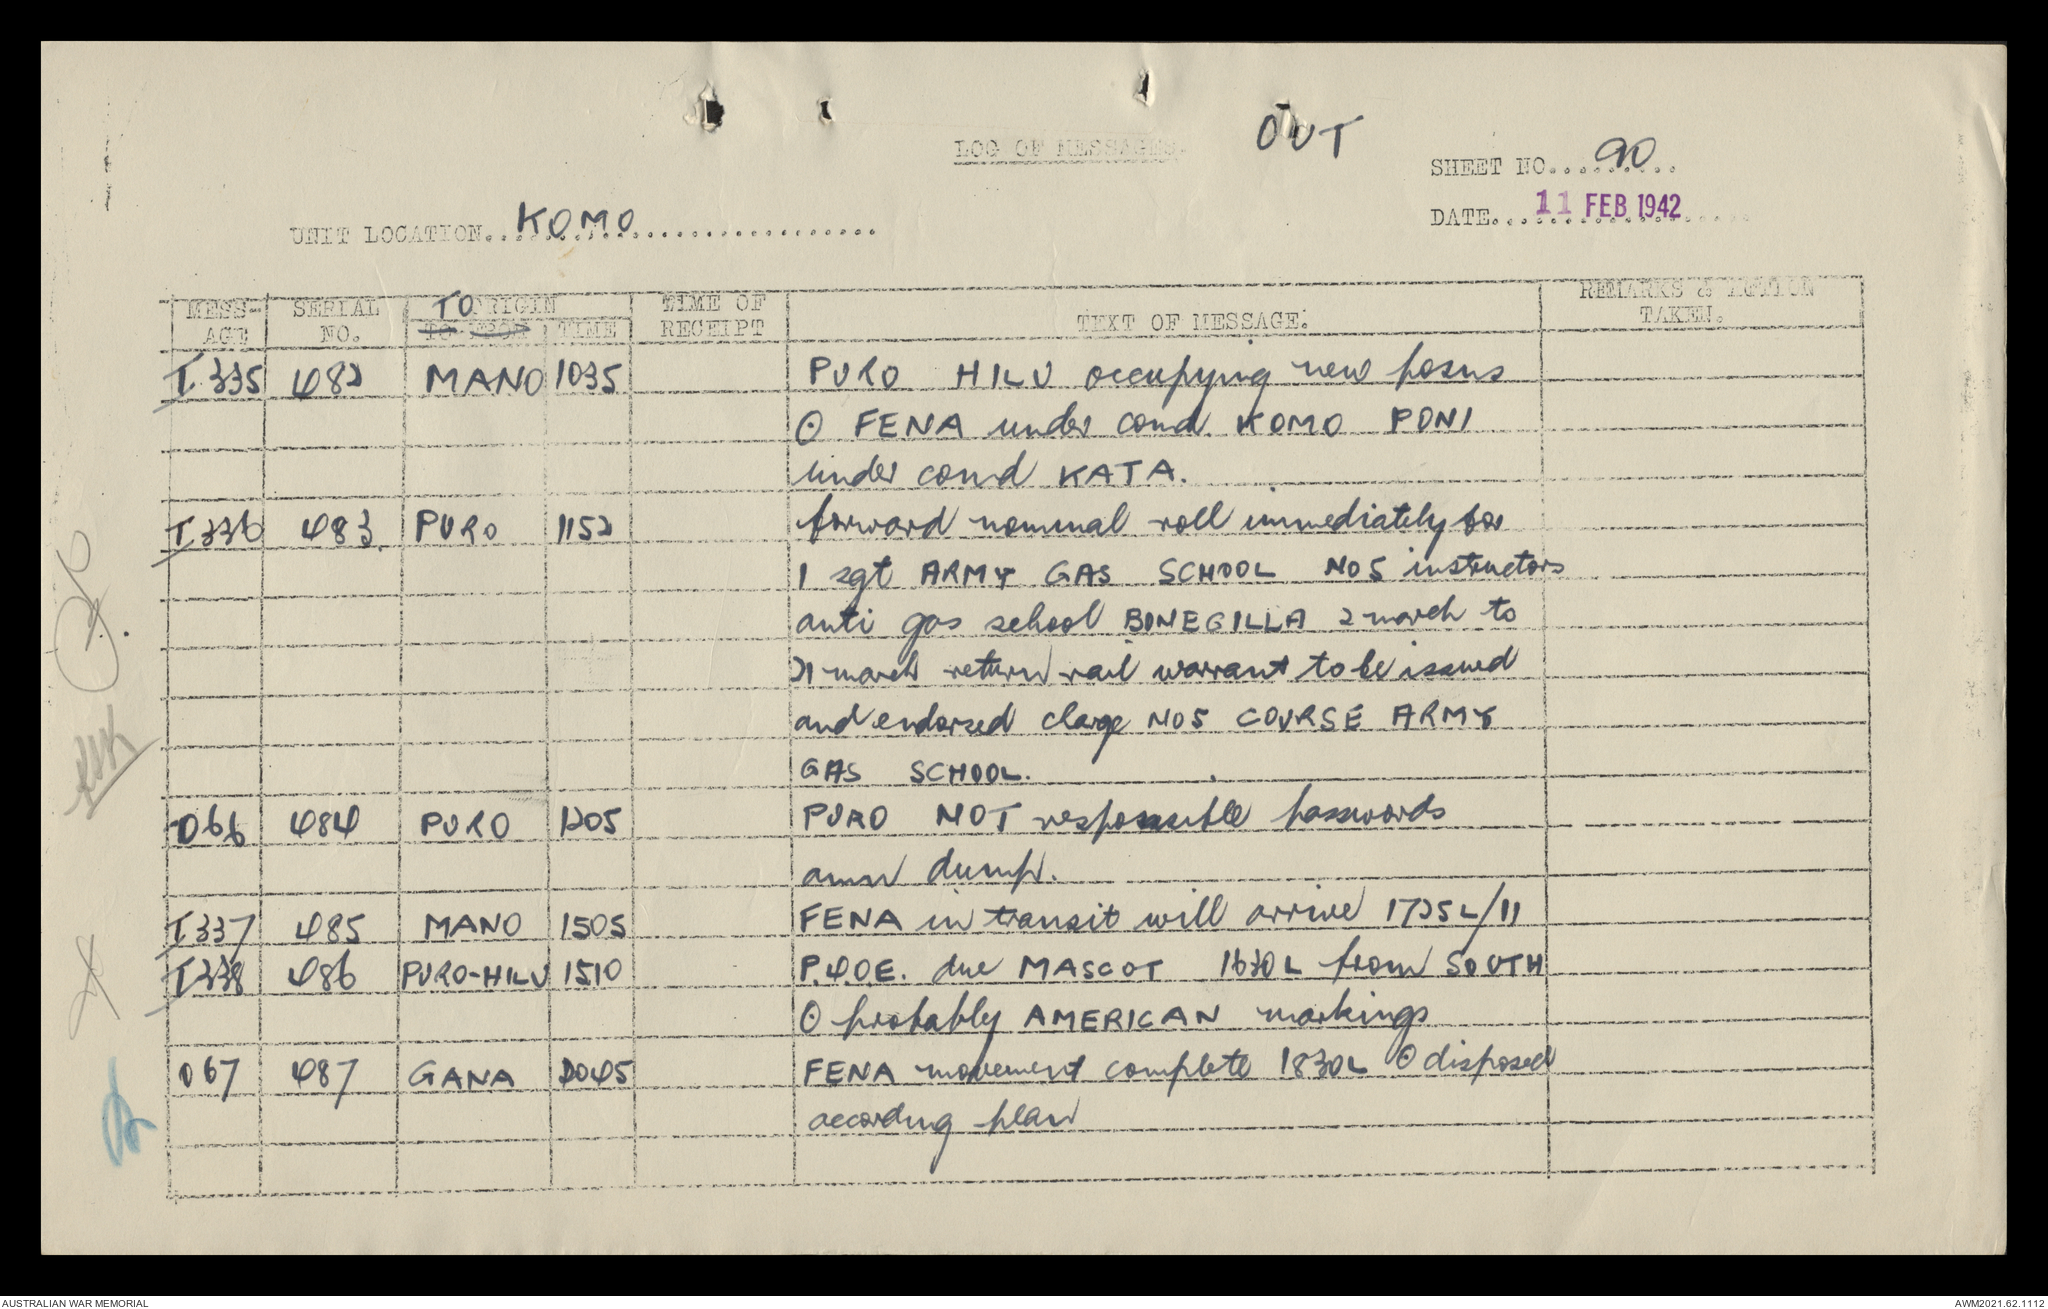 LOG OF MESSAGES. OUT
SHEET NO. 90
UNIT LOCATION KOMO
DATE 11 FEB 1942
MESS-AGE SERIAL NO. TO ORIGIN TO FROM TIME TIME OF RECEIPT TEXT OF MESSAGE. REMARKS & ACTION TAKEN.
T.335 482 MANO 1035 PURO HILU occupying new posns
⊙ FENA under comd KOMO PONI
under comd KATA.
T336 483 PURO 1152 forward nominal roll immediately for
1 sgt ARMY GAS SCHOOL NO5 instructors
anti gas school BONEGILLA 2 march to
21 march return rail warrant to be issued
and endorsed charge NO5 COURSE ARMY
GAS SCHOOL.
O66 484 PURO 1205 PURO NOT responsible passwords
amn dump.
T337 485 MANO 1505 FENA in transit will arrive 1725L/11
T338 486 PURO-HILU 1510 P.40E. due MASCOT 1630L from SOUTH
⊙ probably AMERICAN markings
O67 487 GANA 2045 FENA movement complete 1830L ⊙ disposed
according plan
AUSTRALIAN WAR MEMORIAL AWM2021.62.1112